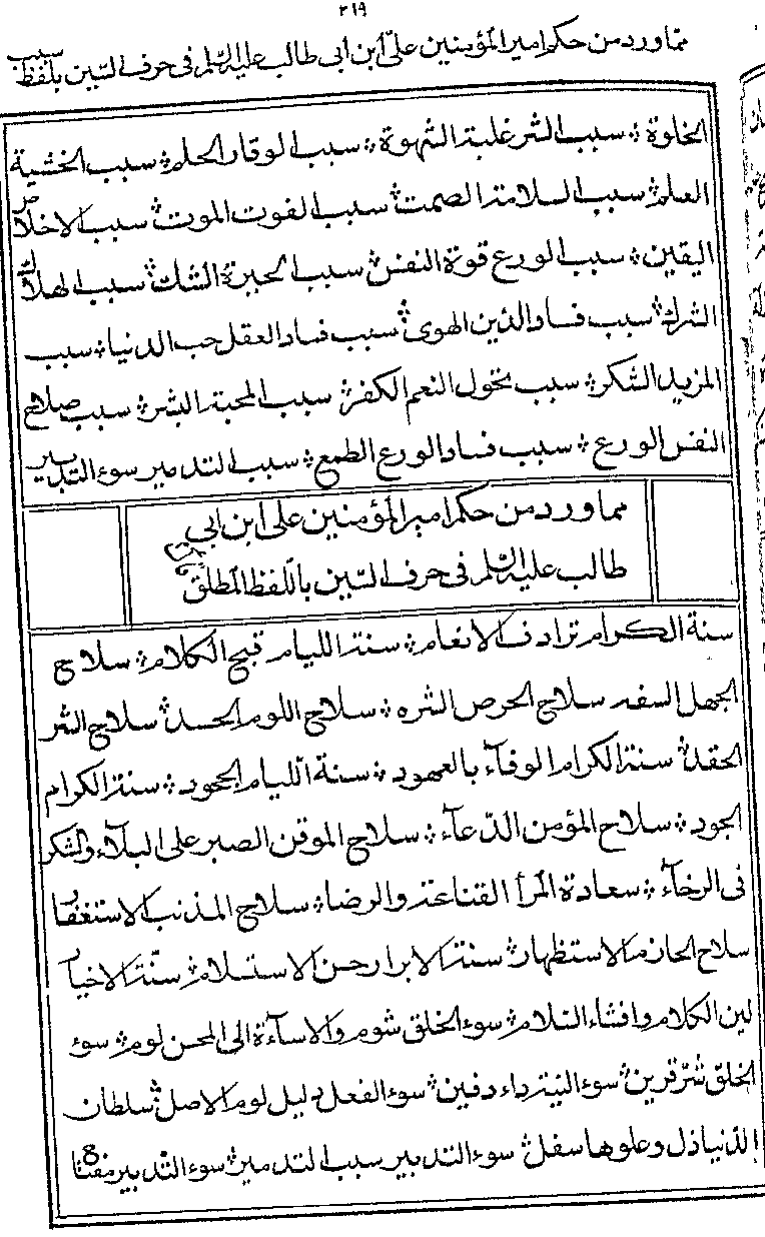 ٢١٩
مما ورد من حكم امير المؤمنين على ابن ابى طالب عليه السلم فى حرف السين بلفظ سبب
الخلوة ؛ سبب الشر غلبة الشهوة ؛ سبب الوقار الحلم ؛ سبب الخشية
العلم ؛ سبب السلامة الصمت ؛ سبب الفوت الموت ؛ سبب الاخلاص
اليقين ؛ سبب الورع قوة النفس ؛ سبب الحيرة الشك ؛ سبب الهلاك
الشرك ؛ سبب فساد الدين الهوى ؛ سبب فساد العقل حب الدنيا ؛ سبب
المزيد الشكر ؛ سبب تحول النعم الكفر ؛ سبب المحبة البشر ؛ سبب صلاح
النفس الورع ؛ سبب فساد الورع الطمع ؛ سبب التدمير سوء التدبير
مما ورد من حكم امير المؤمنين على ابن ابى
طالب عليه السلم فى حرف السين باللفظ المطلق
سنة الكرام ترادف الانعام ؛ سنة الليام قبح الكلام ؛ سلاح
الجهل السفه سلاح الحرص الشره ؛ سلاح اللوم الحسد ؛ سلاح الشر
الحقد ؛ سنة الكرام الوفاء بالعهود ؛ سنة الليام الجحود ؛ سنة الكرام
الجود ؛ سلاح المؤمن الدعآء ؛ سلاح الموقن الصبر على البلآء والشكر
فى الرخآء ؛ سعادة المرأ القناعة والرضا ؛ سلاح المذنب الاستغفار
سلاح الحازم الاستظهار ؛ سنة الابرار حسن الاستسلام ؛ سنّة الاخيار
لين الكلام وافشاء السلام ؛ سوء الخلق شوم والاسآءة الى المحسن لوم ؛ سوء
الخلق شرّ قرين ؛ سوء النية داء دفين ؛ سوء الفعل دليل لوم الاصل ؛ سلطان
الدنيا ذل وعلوها سفل ؛ سوء التدبير سبب التدمير ؛ سوء التدبير مفتاح